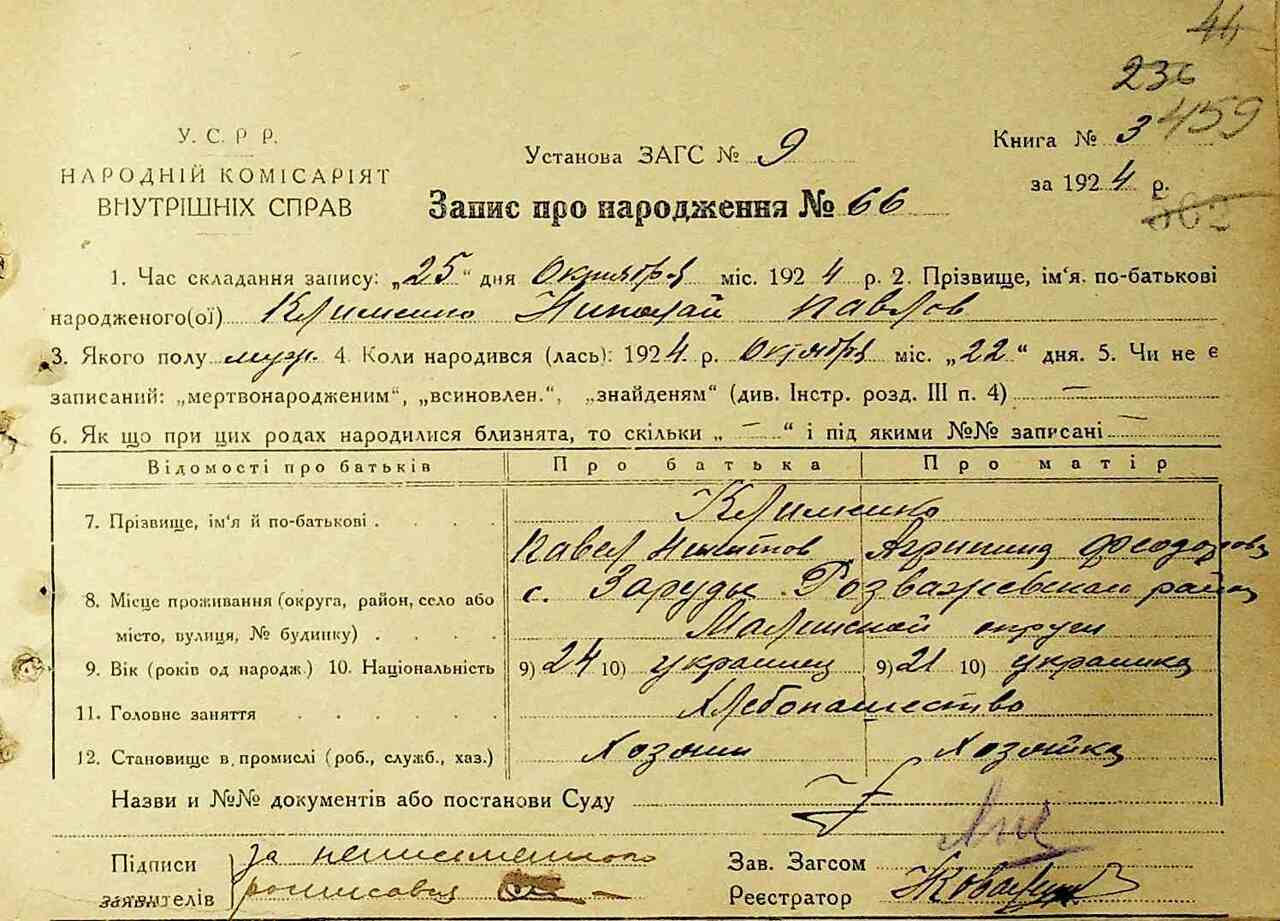 44
236
459
У. С. Р Р.
НАРОДНІЙ КОМІСАРІЯТ
ВНУТРІШНІХ СПРАВ
Установа ЗАГС № 9
Книга № 3
за 1924 р.
Запис про народження № 66
1. Час складання запису: „25“ дня Октября міс. 1924 р. 2. Прізвище, ім'я. по-батькові
народженого(ої) Клименко Николай Павлов
3. Якого полу муж. 4. Коли народився (лась): 1924 р. Октября міс. „22“ дня. 5. Чи не є
записаний: „мертвонародженим“, „всиновлен.“, „знайденям“ (див. Інстр. розд. III п. 4) —
6. Як що при цих родах народилися близнята, то скільки „ — “ і під якими №№ записані —
Відомості про батьків Про батька Про матір
7. Прізвище, ім'я й по-батькові . . . . Клименко
Павел Никитов Агрипина Феодорова
8. Місце проживання (округа, район, село або с. Заруды Розважевском район
місто, вулиця, № будинку) . . . . Малинской округи
9. Вік (років од народж.) 10. Національність 9) 24 10) украинец 9) 21 10) украинка
11. Головне заняття . . . . . Хлебопашество
12. Становище в промислі (роб., служб., хаз.) Хозяин Хозяйка
Назви и №№ документів або постанови Суду
Підписи за неписменного
заявителів росписовся
Зав. Загсом
Реєстратор